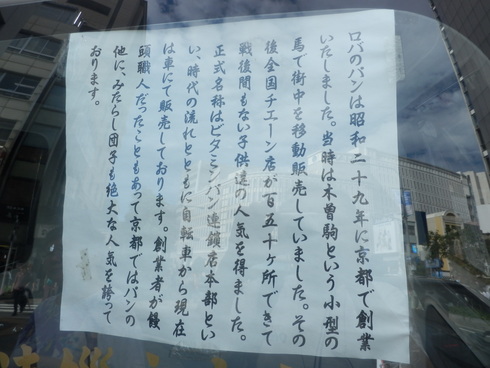 ロバのパンは昭和二十九年に京都で創業
いたしました。当時は木曽駒という小型の
馬で街中を移動販売していました。その
後全国チエーン店が百五十ヶ所できて
戦後間もない子供達の人気を得ました。
正式名称はビタミンパン連鎖店本部とい
い、時代の流れとともに自転車から現在
は車にて販売しております。創業者が饅
頭職人だったこともあって京都ではパンの
他に、みたらし団子も絶大な人気を誇って
おります。